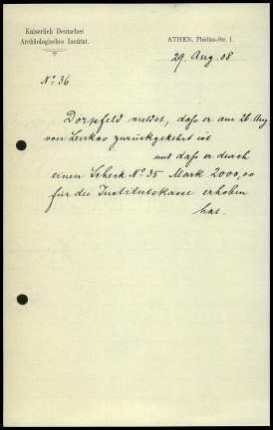 Kaiserlich Deutsches
Archäologisches Institut.
ATHEN, Phidias-Str. 1.
29 Aug. 08
No. 36
Dörpfeld meldet, dass er am 26 Aug
von Leukas zurückgekehrt ist
und dass er durch
einen Scheck No. 35 Mark 2000,00
für die Institutskasse erhoben
hat.